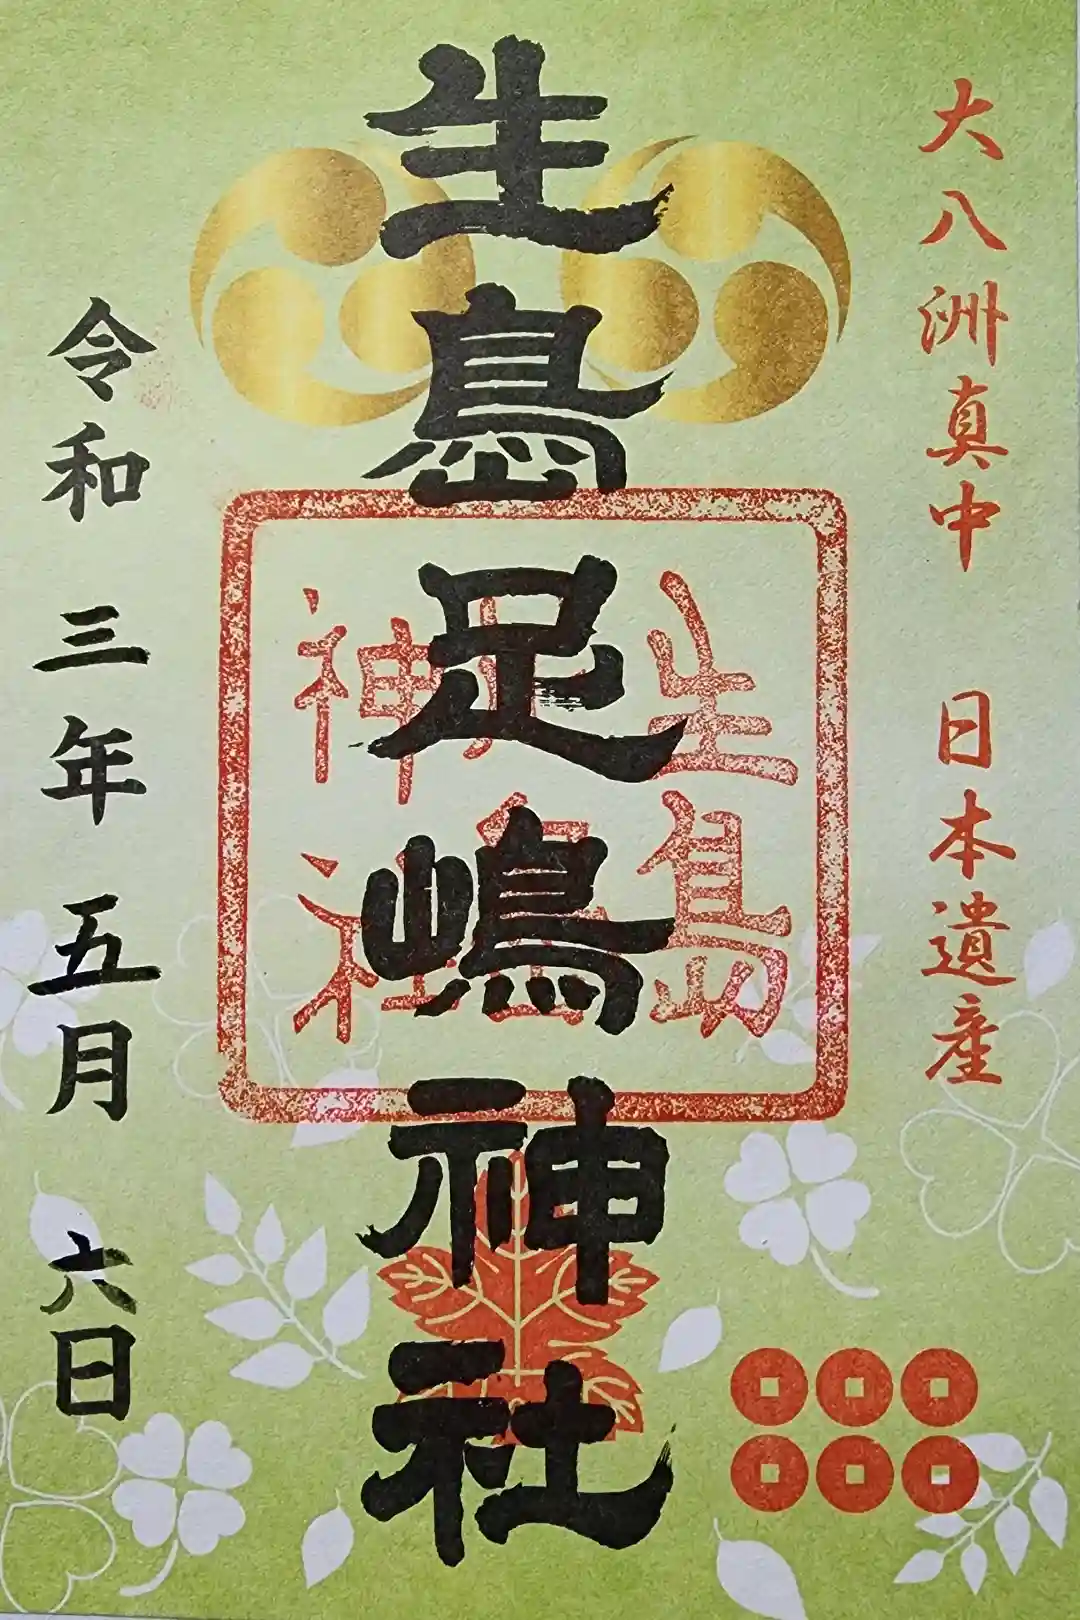 大八洲真中 日本遺産
生島足嶋神社
生島
足島
神社
令和三年五月六日